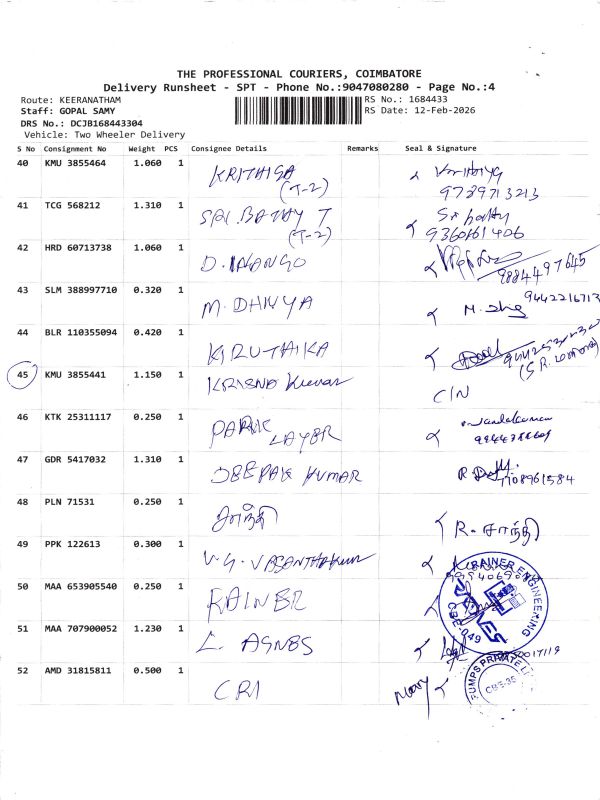 THE PROFESSIONAL COURIERS, COIMBATORE
Delivery Runsheet - SPT - Phone No.:9047080280 - Page No.:4
Route: KEERANATHAM
RS No.: 1684433
Staff: GOPAL SAMY
RS Date: 12-Feb-2026
DRS No.: DCJB168443304
Vehicle: Two Wheeler Delivery
S No Consignment No Weight PCS Consignee Details Remarks Seal & Signature
40 KMU 3855464 1.060 1 KRITHIGA
(T-2) 9739713213
41 TCG 568212 1.310 1 SRI.BATHY T
(T-2) 9360161406
42 HRD 60713738 1.060 1 D.INANGO
9884497645
43 SLM 388997710 0.320 1 M.DHIVYA
9442216713
44 BLR 110355094 0.420 1 KIRUTHIKA
45 KMU 3855441 1.150 1 KRISNA Kumar C/N
46 KTK 25311117 0.250 1 PARK
LAYER
47 GDR 5417032 1.310 1 DEEPAK KUMAR
48 PLN 71531 0.250 1 சாந்தி R. சாந்தி
49 PPK 122613 0.300 1 V.G. VASANTHAKUMAR
50 MAA 653905540 0.250 1 RAINER
RAINER ENGINEERING
CBE-049
51 MAA 707900052 1.230 1 L. AGNES
52 AMD 31815811 0.500 1 CRI
PUMPS PRIVATE
CBE-35